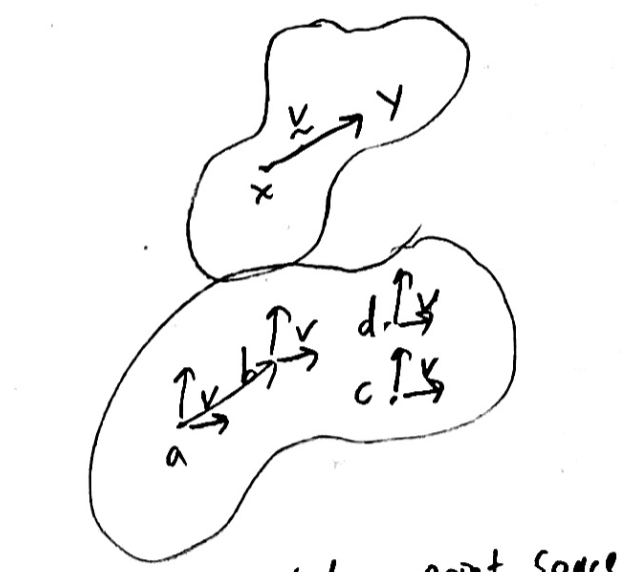 v y
x
d v
b v
v c v
a
point space